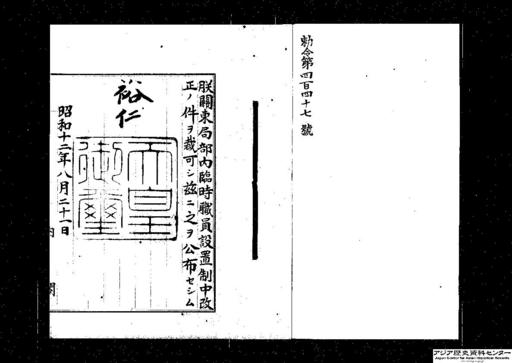 勅令第四百四十七號
朕關東局部内臨時職員設置制中改
正ノ件ヲ裁可シ玆ニ之ヲ公布セシム
裕仁
天皇御璽
昭和十二年八月二十一日
内
閣
アジア歴史資料センター
Japan Center for Asian Historical Records